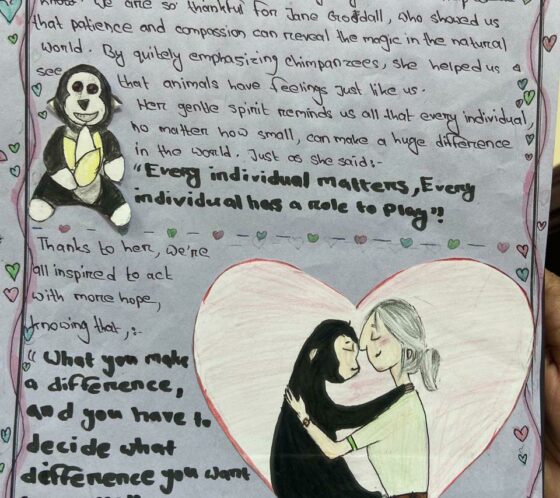 We are so thankful for Jane Goodall, who showed us
that patience and compassion can reveal the magic in the natural
world. By quitely emphasizing chimpanzees, she helped us
see that animals have feelings Just like us.
Her gentle spirit reminds us all that every individual,
no matter how small, can make a huge difference
in the world. Just as she said:-
"Every individual matters, Every
individual has a role to play"!
Thanks to her, we're
all inspired to act
with more hope,
knowing that,:-
"What you make
a difference,
and you have to
decide what
difference you want